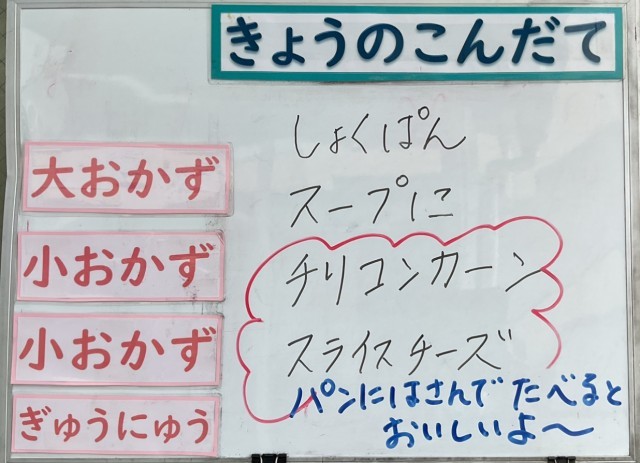 きょうのこんだて
しょくぱん
大おかず スープに
小おかず チリコンカーン
小おかず スライスチーズ
ぎゅうにゅう パンにはさんでたべると
おいしいよ～